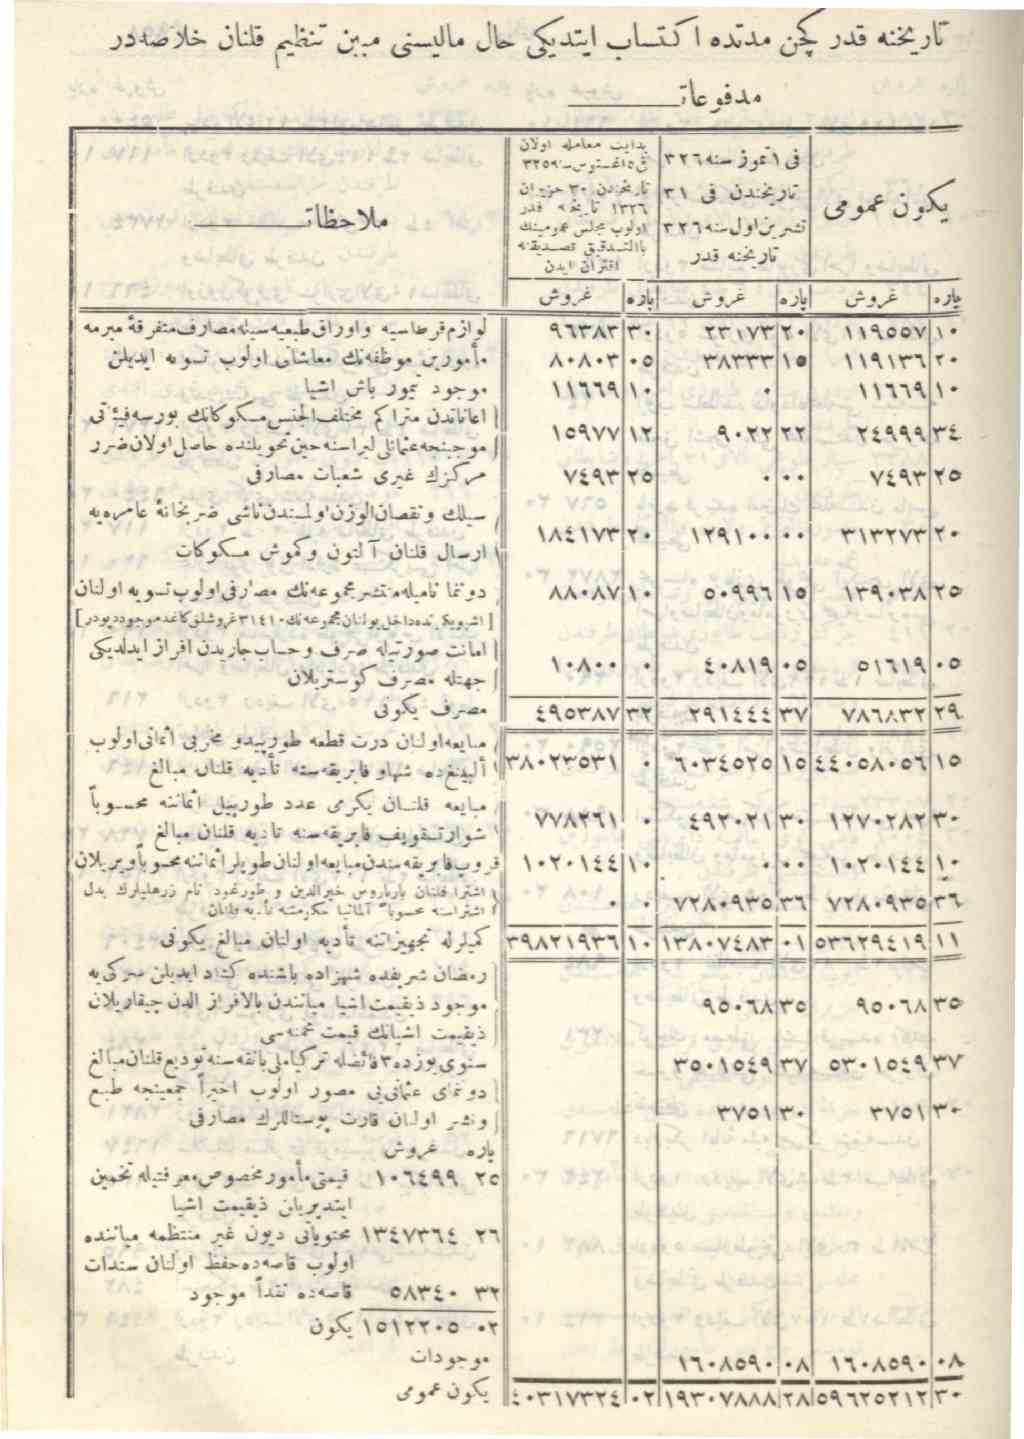 تاریخنه قدر کچن مدتده اکتساب ایتدیکی حال مالیسنی مبین تنظیم قلنان خلاصه‌در
مدفوعات
یكون عمومی
فی ١ تموز سنه ٣٢٦
تاریخندن فی ٣١
تشرین اول سنه ٣٢٦
تاریخنه قدر
بدایت معامله اولان
تاریخندن ٣٠ حزیران
١٣٢٦ تاریخنه قدر
اولوب مجلس عمومینك
بالتدقیق تصدیقنه
اقتران ایدن
ملاحظات
پاره غروش پاره غروش پاره غروش
١٠ ١١٩٥٥٧ ٢٠ ٢٣١٧٣ ٣٠ ٩٦٣٨٣ لوازم قرطاسیه و اوراق طبعیه سیله مصارف متفرقهٔ مبرمه
٢٠ ١١٩١٣٦ ١٥ ٣٨٣٣٣ ٠٥ ٨٠٨٠٣ مأمورین موظفه‌نك معاشاتی اولوب تسویه ایدیلن
١٠ ١١٦٦٩ ٠ ١٠ ١١٦٦٩ موجود تیمور باش اشیا
اعاناتدن متراكم مختلف الجنس مسكوكاتك بورسه فیئاتی
٣٤ ٢٤٩٩٩ ٢٢ ٩٠٢٢ ١٢ ١٥٩٧٧ موجبنجه عثمانلی لیراسنه حین تحویلنده حاصل اولان ضرر
٢٥ ٧٤٩٣ ٠٠ ٠ ٢٥ ٧٤٩٣ مركزك غیری شعبات مصارفی
سیلك و نقصان الوزن اولمسندن ناشی ضربخانهٔ عامره‌یه
٢٠ ٣١٣٢٧٣ ٠٠ ١٢٩١٠٠ ٢٠ ١٨٤١٧٣ ارسال قلنان آلتون و كوموش مسكوكات
٢٥ ١٣٩٠٣٨ ١٥ ٥٠٩٩٦ ١٠ ٨٨٠٨٧ دوتما نامیله منتشر مجموعه‌نك مصارفی اولوب تسویه اولنان
[ اشبو یكونده داخل بولنان مجموعه‌نك ٣١٤١٠ غروشلق كاغد موجودیدر ]
امانت صورتیله صرف و حساب جاریدن افراز ایدلدیكی
٠٥ ٥١٦١٩ ٠٥ ٤٠٨١٩ ٠ ١٠٨٠٠ جهتله مصرف كوستریلان
٢٩ ٧٨٦٨٣٢ ٣٧ ٢٩١٤٤٤ ٣٢ ٤٩٥٣٨٧ مصرف یكونی
مبایعه اولنان درت قطعه طورپیدو مخربی اثمانی اولوب
١٥ ٤٤٠٥٨٠٥٦ ١٥ ٦٠٣٤٥٢٥ ٠ ٣٨٠٢٣٥٣١ ألبینغده شهاو فابریقه‌سنه تأدیه قلنان مبالغ
مبایعه قلنان یكرمی عدد طورپیل اثماننه محسوباً
٣٠ ١٢٧٠٢٨٢ ٣٠ ٤٩٢٠٢١ ٠ ٧٧٨٢٦١ شوارتسقوپف فابریقه‌سنه تأدیه قلنان مبالغ
١٠ ١٠٢٠١٤٤ ٠٠ ٠ ١٠ ١٠٢٠١٤٤ قروپ فابریقه‌سندن مبایعه اولنان طوپلر اثماننه محسوباً ویریلان
اشترا قلنان بارباروس خیرالدین و طورغود نام زرهلیلرك بدل
٣٦ ٧٢٨٠٩٣٥ ٣٦ ٧٢٨٠٩٣٥ ٠ ٠ اشتراسنه محسوباً آلمانیا حكومتنه تأدیه قلنان
١١ ٥٣٦٢٩٤١٩ ٠١ ١٣٨٠٧٤٨٣ ١٠ ٣٩٨٢١٩٣٦ كمیلرله تجهیزاتنه تأدیه اولنان مبالغ یكونی
رمضان شریفده شهزاده باشنده كشاد ایدیلن سركی‌یه
٣٥ ٩٥٠٦٨ ٣٥ ٩٥٠٦٨ موجود ذیقیمت اشیا میانندن بالافراز الدن چیقاریلان
ذیقیمت اشیانك قیمت مخمنه‌سی
٣٧ ٥٣٠١٥٤٩ ٣٧ ٣٥٠١٥٤٩ سنوی یوزده ٣ فائضله تركیا ملی بانقه‌سنه تودیع قلنان مبالغ
دونمای عثمانی‌یی مصور اولوب اخیراً جمعیتجه طبع
٣٠ ٣٧٥١ ٣٠ ٣٧٥١ و نشر اولنان قارت پوستاللرك مصارفی
پاره غروش
٢٥ ١٠٦٤٩٩ قیمتی مأمور مخصوص معرفتیله تخمین
ایتدیریلن ذیقیمت اشیا
٢٦ ١٣٤٧٣٦٤ محتویاتی دیون غیر منتظمه میاننده
اولوب قاصه‌ده حفظ اولنان سندات
٣٢ ٥٨٣٤٠ قاصه‌ده نقداً موجود
٠٢ ١٥١٢٢٠٥ یكون
٠٨ ١٦٠٨٥٩٠ ٠٨ ١٦٠٨٥٩٠ موجودات
٣٠ ٥٩٦٢٥٢١٢ ٢٨ ١٩٣٠٧٨٨٨ ٠٢ ٤٠٣١٧٣٢٤ یكون عمومی